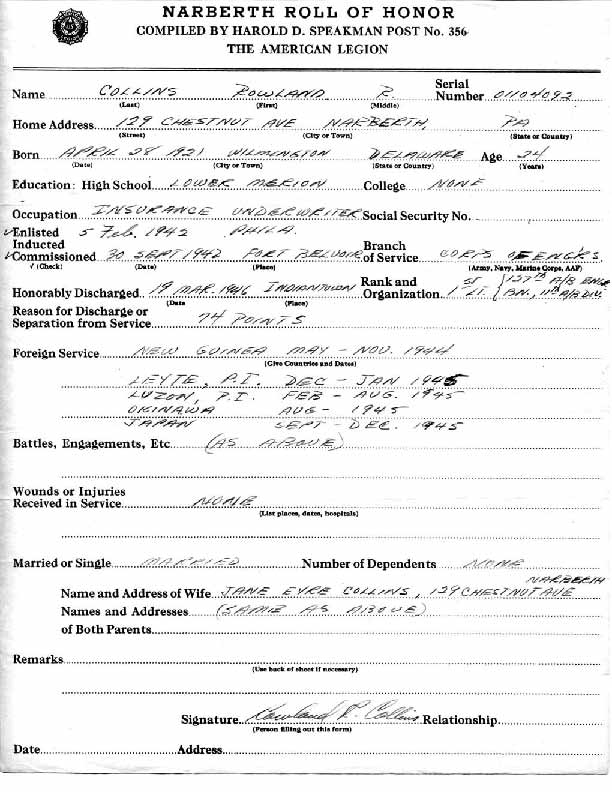 NARBERTH ROLL OF HONOR
COMPILED BY HAROLD D. SPEAKMAN POST No. 356
THE AMERICAN LEGION
Name COLLINS ROWLAND R. Serial Number 01104092
(Last) (First) (Middle)
Home Address 129 CHESTNUT AVE NARBERTH, PA
(Street) (City or Town) (State or Country)
Born APRIL 28 1921 WILMINGTON DELAWARE Age 24
(Date) (City or Town) (State or Country) (Years)
Education: High School LOWER MERION College NONE
Occupation INSURANCE UNDERWRITER Social Security No.
✓Enlisted 5 Feb. 1942 PHILA.
Inducted Branch
✓Commissioned 30 SEPT 1942 FORT BELVOIR of Service CORPS OF ENGRS.
✓(Check) (Date) (Place) (Army, Navy, Marine Corps, AAF)
Honorably Discharged 19 MAR. 1946 INDIANTOWN Rank and Organization 1ST LT. { 127th A/B ENGR BN., 11th A/B DIV.
(Date (Place)
Reason for Discharge or
Separation from Service 74 POINTS
Foreign Service NEW GUINEA MAY - NOV. 1944
(Give Countries and Dates)
LEYTE, P.I. DEC - JAN 1945
LUZON, P.I. FEB - AUG. 1945
OKINAWA AUG - 1945
JAPAN SEPT - DEC. 1945
Battles, Engagements, Etc. (AS ABOVE)
Wounds or Injuries
Received in Service NONE
(List places, dates, hospitals)
Married or Single MARRIED Number of Dependents NONE
NARBERTH
Name and Address of Wife JANE EYRE COLLINS, 129 CHESTNUT AVE
Names and Addresses (SAME AS ABOVE)
of Both Parents
Remarks
(Use back of sheet if necessary)
Signature Rowland R. Collins Relationship
(Person filling out this form)
Date Address